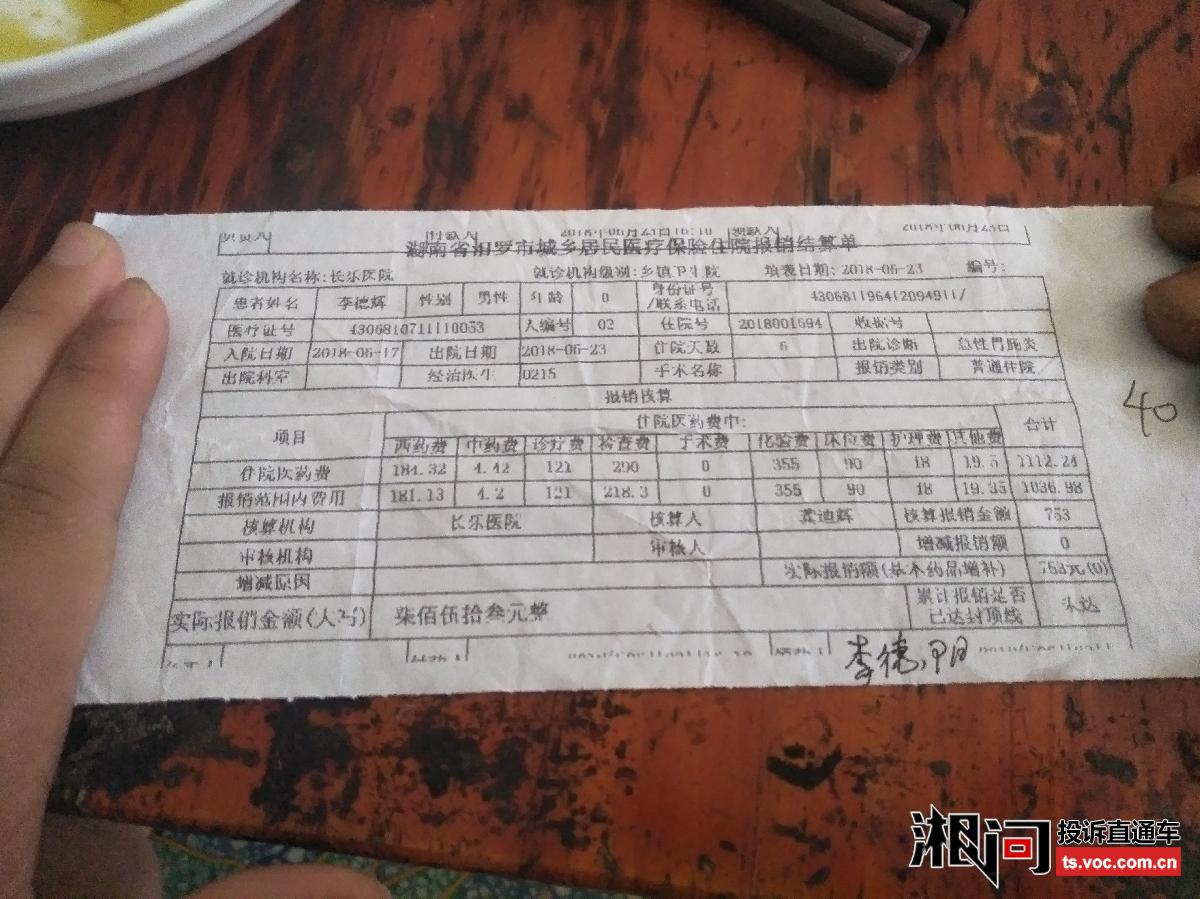 负责人 付款人 2018年06月23日16:10 领款人 2018年06月23日
湖南省汨罗市城乡居民医疗保险住院报销结算单
就诊机构名称:长乐医院 就诊机构级别:乡镇卫生院 填表日期:2018-06-23 编号:
患者姓名 李德辉 性别 男性 年龄 0 身份证号/联系电话 430681196412094911/
医疗证号 4306810711110053 人编号 02 住院号 2018001694 收据号
入院日期 2018-06-17 出院日期 2018-06-23 住院天数 6 出院诊断 急性胃肠炎
出院科室 经治医生 0215 手术名称 报销类别 普通住院
报销核算
项目 住院医药费中: 合计
西药费 中药费 诊疗费 检查费 手术费 化验费 床位费 护理费 其他费
住院医药费 184.32 4.42 121 290 0 355 90 18 19.5 1112.24
报销范围内费用 181.13 4.2 121 218.3 0 355 90 18 19.35 1036.98
核算机构 长乐医院 核算人 龚迪辉 核算报销金额 753
审核机构 审核人 增减报销额 0
增减原因 实际报销额(基本药品增补) 753元(0)
实际报销金额(大写) 柒佰伍拾叁元整 累计报销是否已达封顶线 未达
李德阳
40
湘问 投诉直通车
ts.voc.com.cn